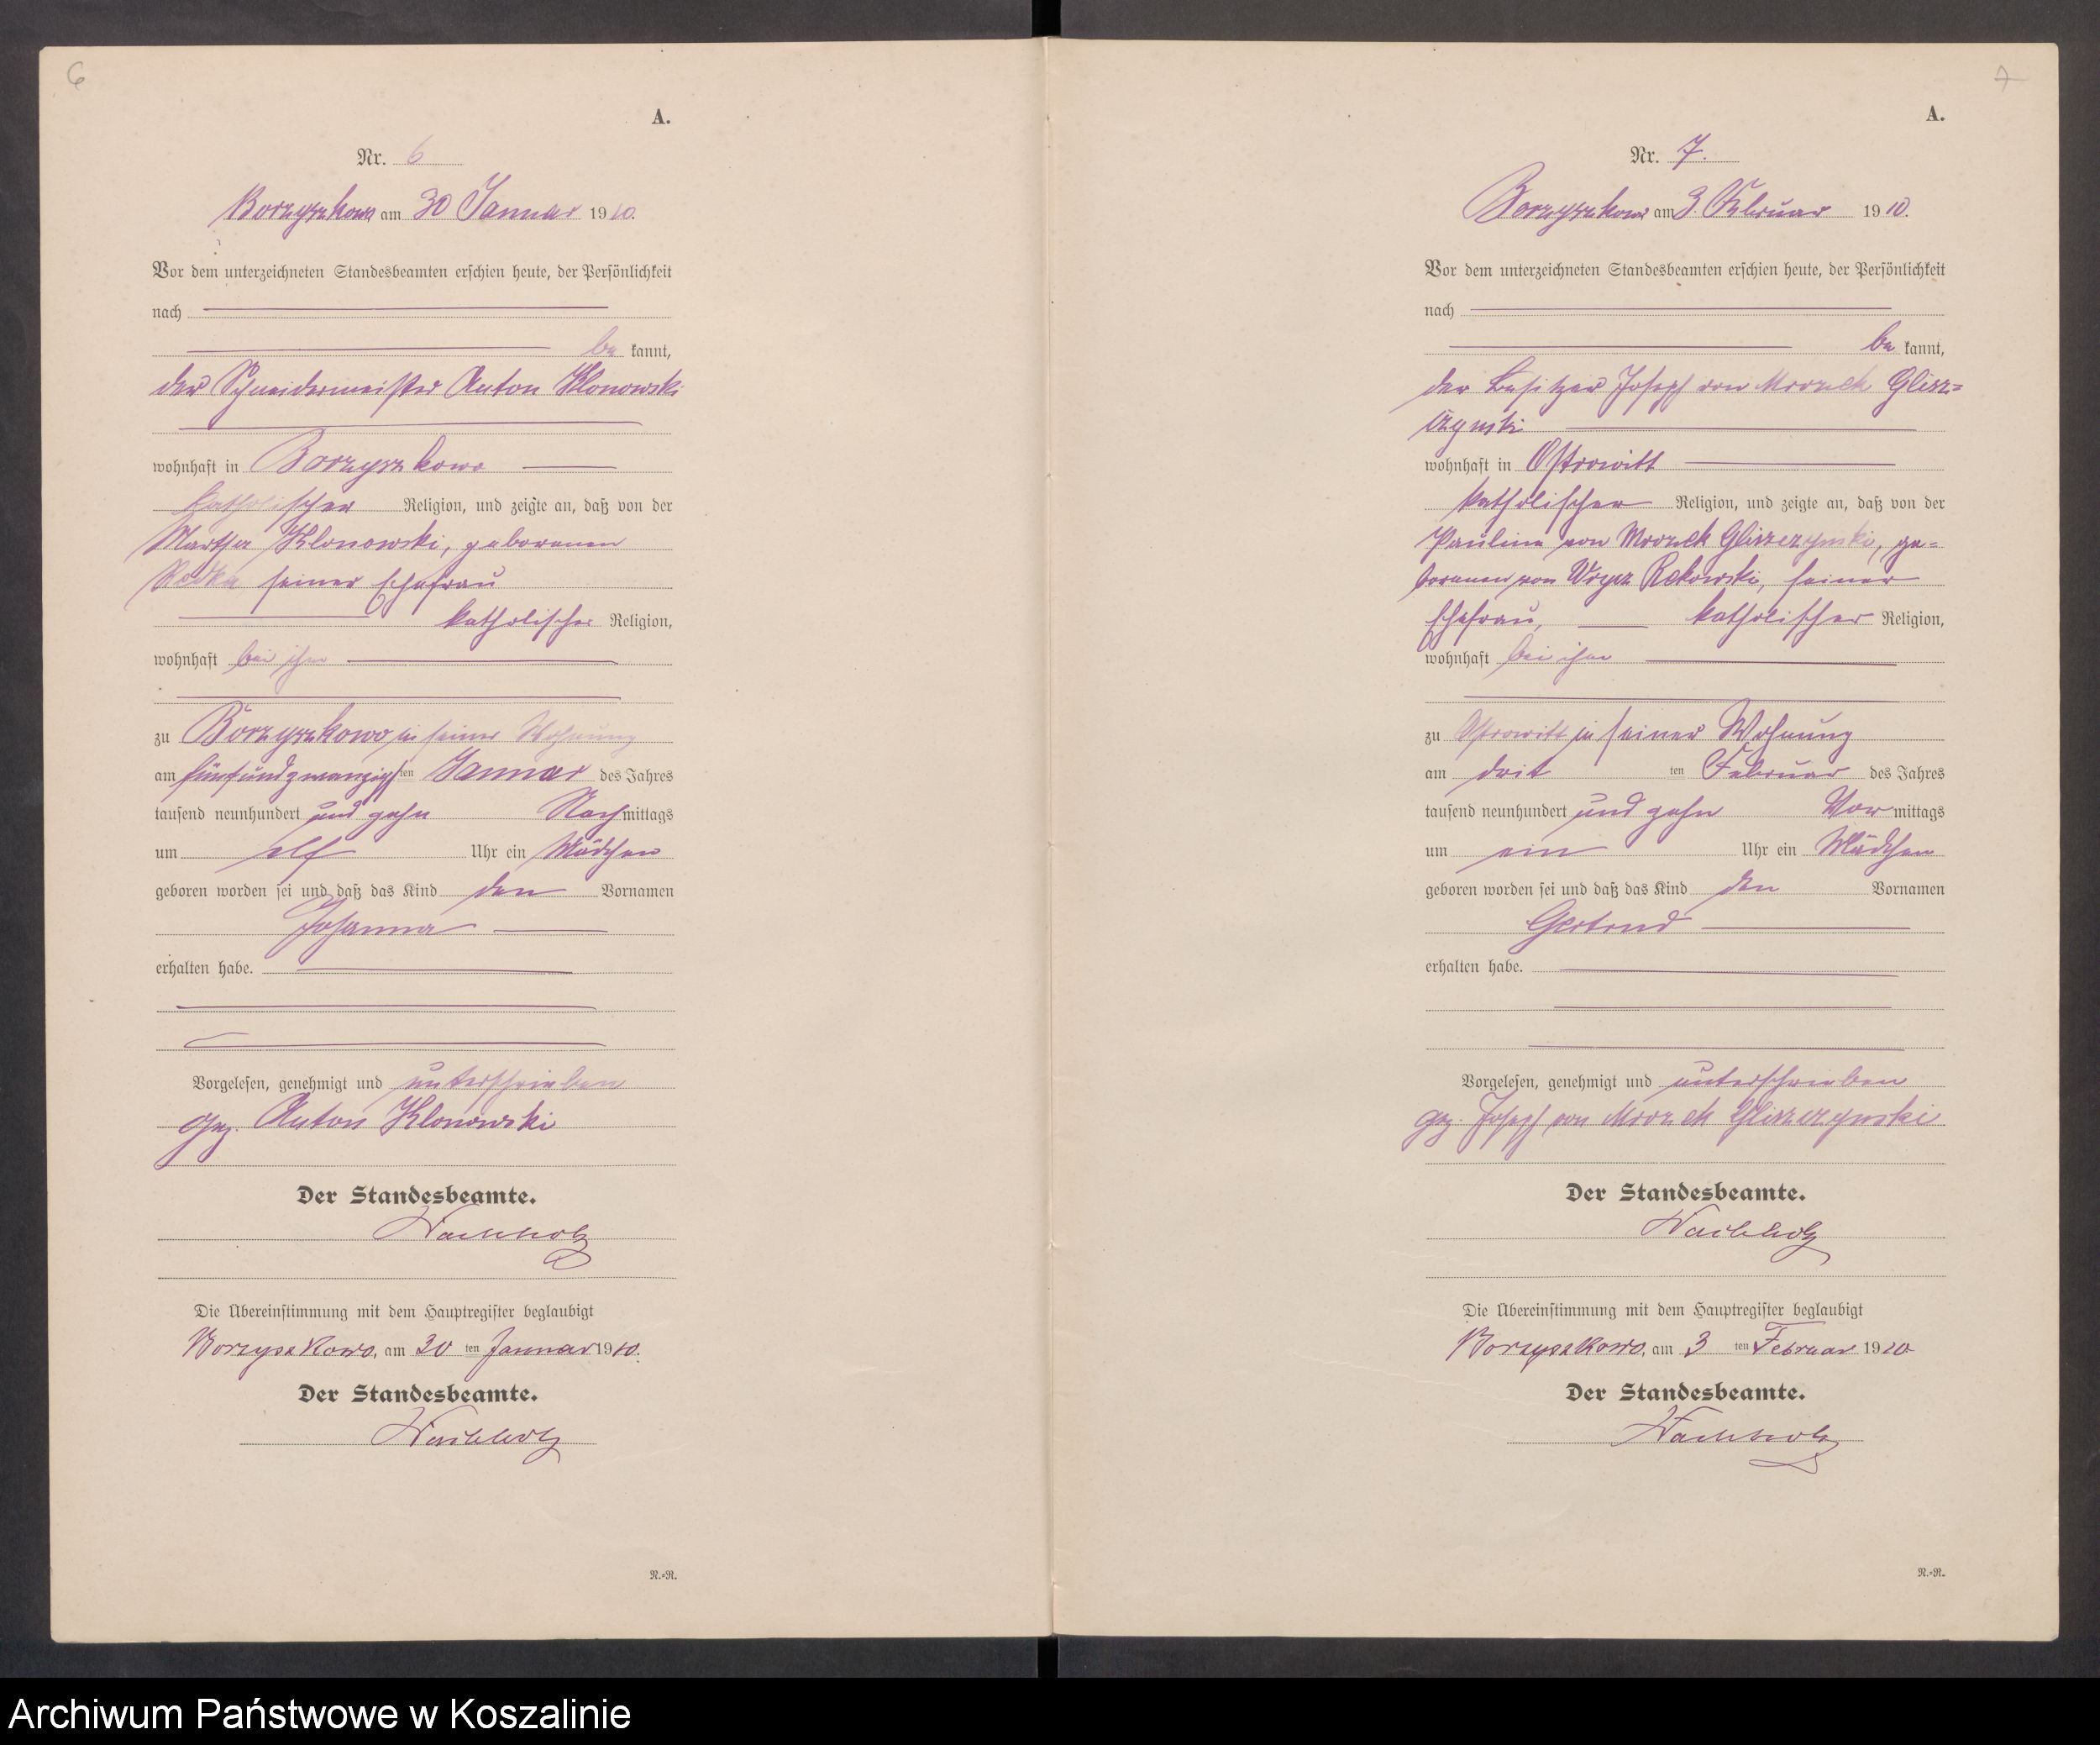 6
A.
Nr. 6
Borzyszkowo am 30 Januar 1910.
Vor dem unterzeichneten Standesbeamten erschien heute, der Persönlichkeit
nach
be kannt,
der Schneidermeister Anton Klonowski
wohnhaft in Borzyszkowo
katholischer Religion, und zeigte an, daß von der
Martha Klonowski, geborenen
seiner Ehefrau
katholischer Religion,
wohnhaft bei ihm
zu Borzyszkowo in seiner Wohnung
am fünfundzwanzigsten Januar des Jahres
tausend neunhundert und zehn Nachmittags
um elf Uhr ein Mädchen
geboren worden sei und daß das Kind den Vornamen
Johanna
erhalten habe.
Vorgelesen, genehmigt und unterschrieben
gez. Anton Klonowski
Der Standesbeamte.
Wachholz
Die Übereinstimmung mit dem Hauptregister beglaubigt
Borzyszkowo, am 30 ten Januar 1910.
Der Standesbeamte.
Wachholz
N.-N.
7
A.
Nr. 7.
Borzyszkowo am 3. Februar 1910.
Vor dem unterzeichneten Standesbeamten erschien heute, der Persönlichkeit
nach
be kannt,
der Besitzer Joseph von Mrozek Glisz=
czynski
wohnhaft in Ostrowitt
katholischer Religion, und zeigte an, daß von der
Pauline von Mrozek Gliszczynski, ge=
borenen von Wrycz Rekowski, seiner
Ehefrau, katholischer Religion,
wohnhaft bei ihm
zu Ostrowitt in seiner Wohnung
am drit ten Februar des Jahres
tausend neunhundert und zehn Vormittags
um ein Uhr ein Mädchen
geboren worden sei und daß das Kind den Vornamen
Gertrud
erhalten habe.
Vorgelesen, genehmigt und unterschrieben
gez. Joseph von Mrozek Gliszczynski
Der Standesbeamte.
Wachholz
Die Übereinstimmung mit dem Hauptregister beglaubigt
Borzyszkowo, am 3 ten Februar 1910
Der Standesbeamte.
Wachholz
N.-N.
Archiwum Państwowe w Koszalinie